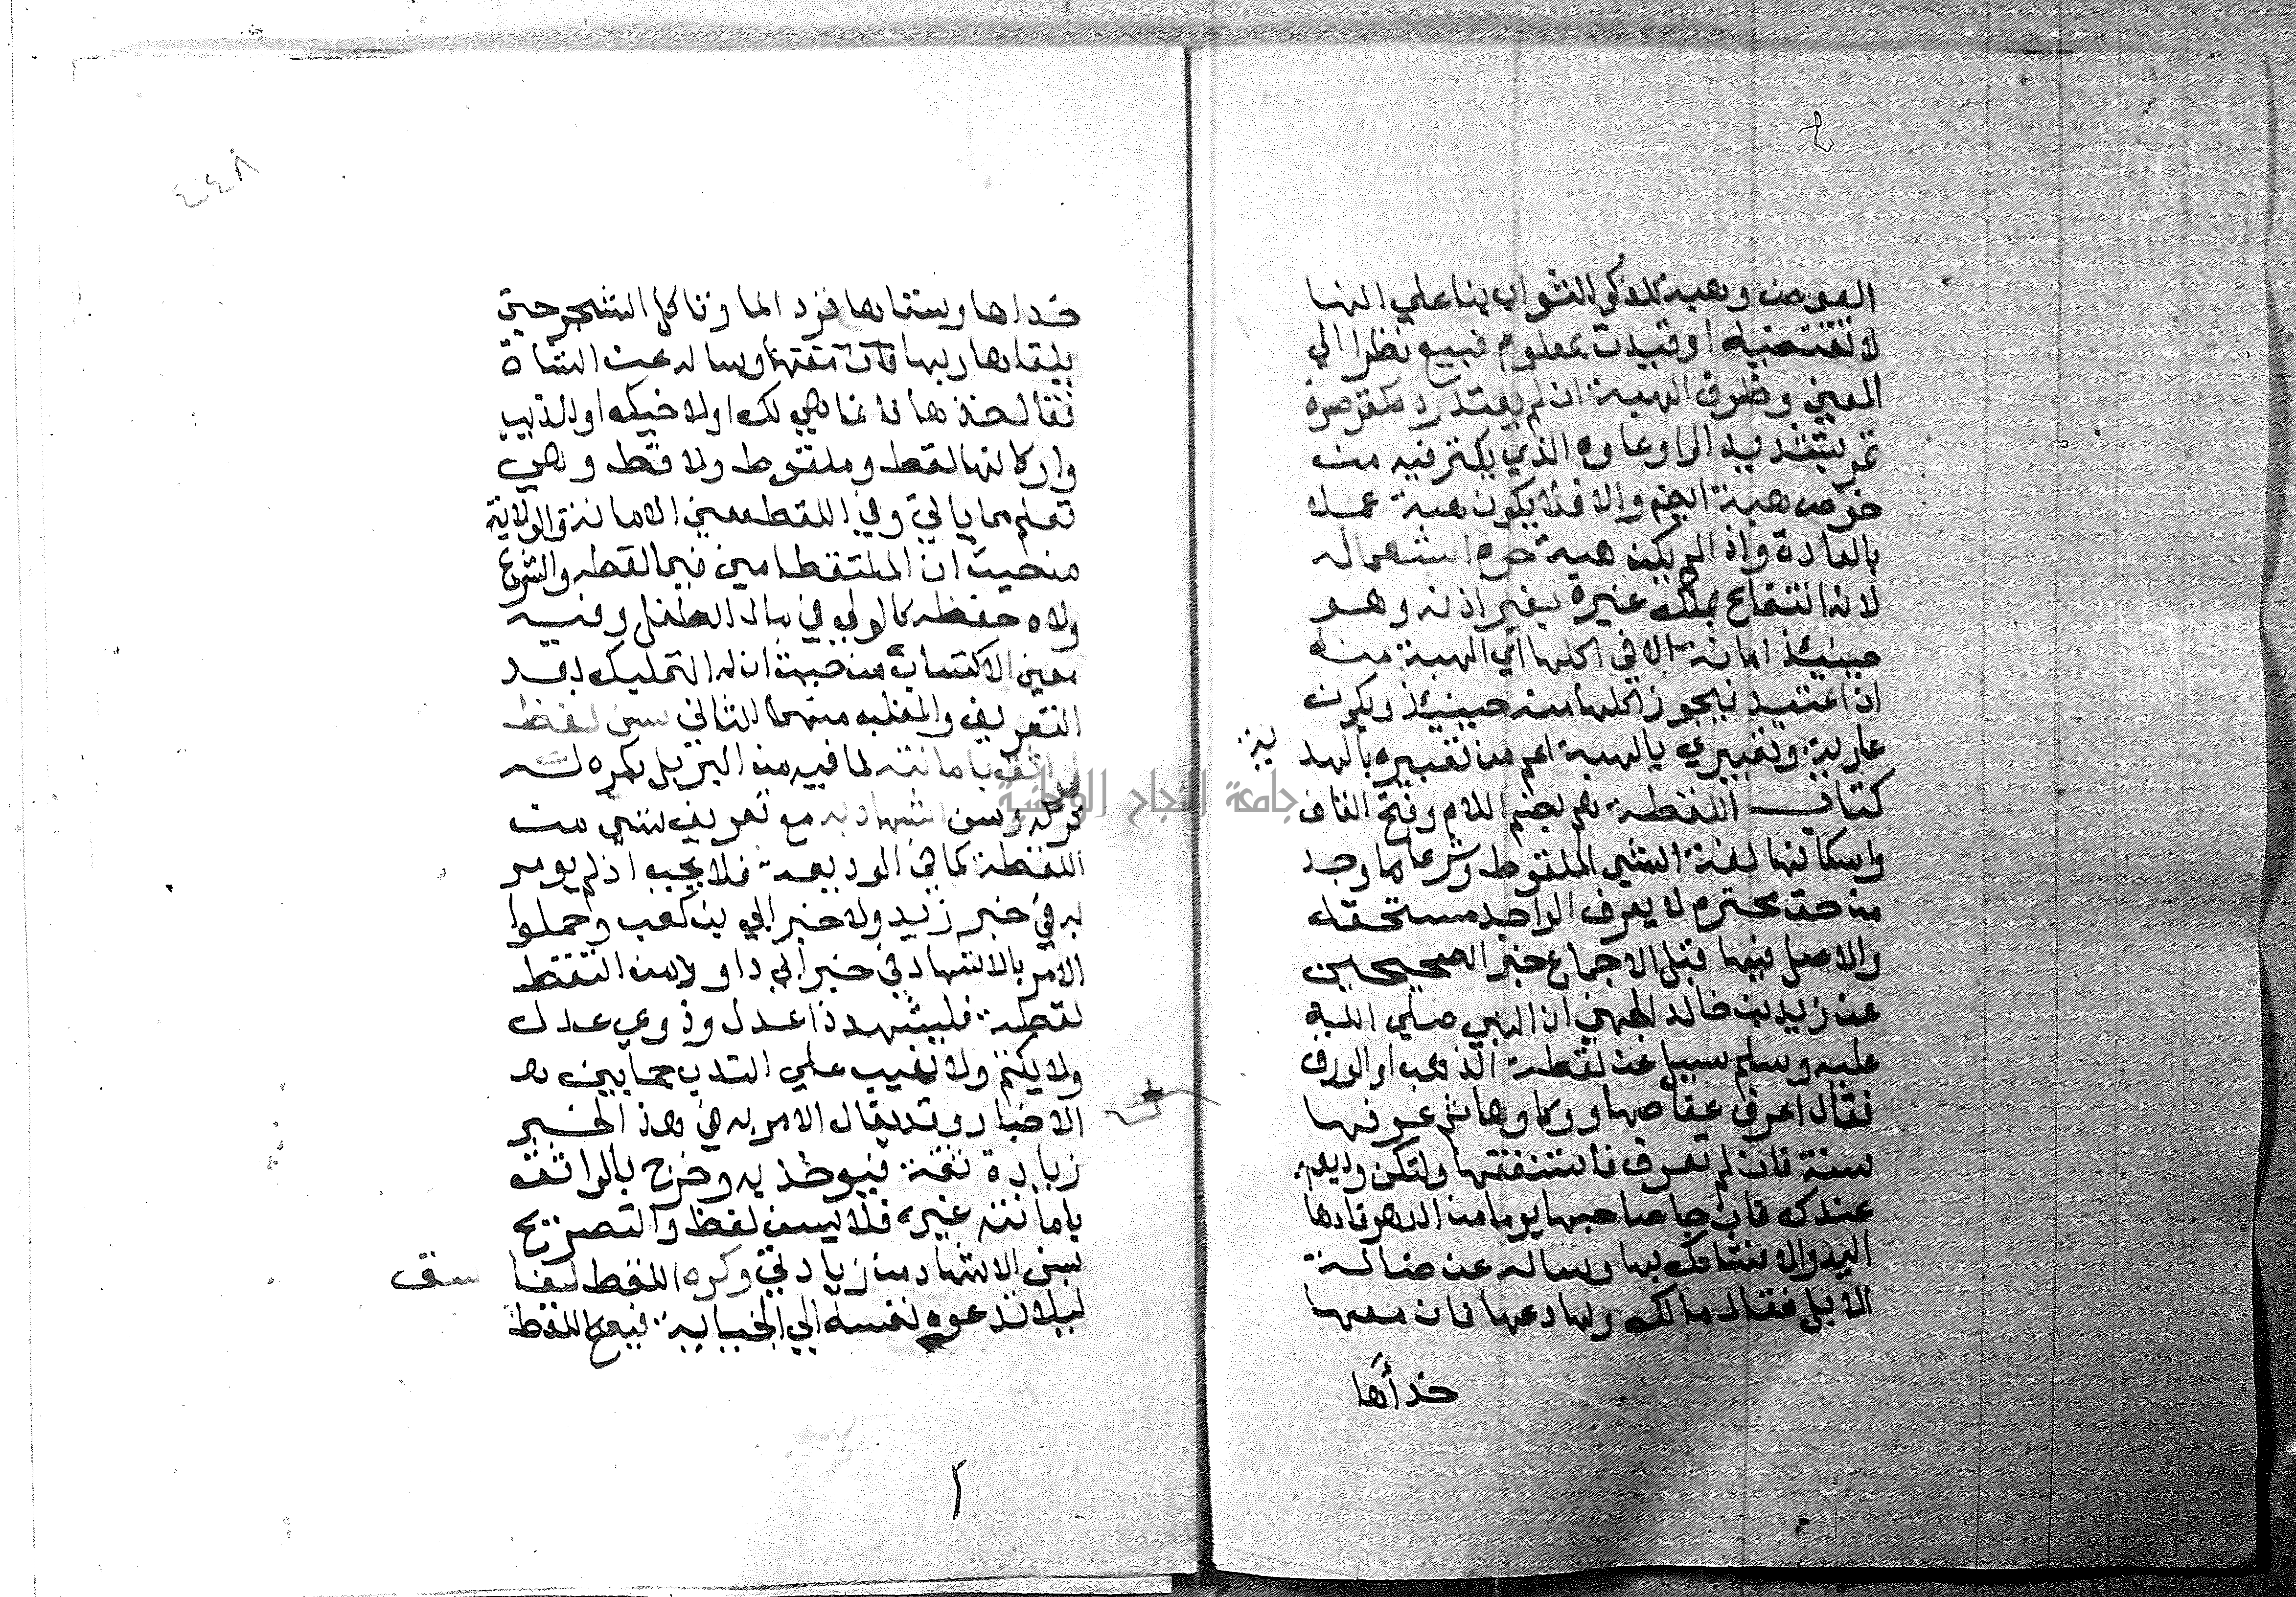 ٤
العوض وهبة لذكر الثواب بنا علي انها
لا تقتضيه او قيدت بمعلوم فبيع نظرا الي
المعني وظرف الهبة ان لم يعتد رده كقوصرة
تمر بتشديد الرا وعاوه الذي يكنز فيه من
خوص هبة ايضم والا فلا يكون هبة عملا
بالعادة واذا لم يكن هبة حرم استعماله
لانه انتفاع بملك غيره بغير اذنه وهو
حينيذ امانة الا في اكلها اي الهبة منه
ان اعتيد فيجوز اكلها منه حينيذ ويكون
عارية وتعبيري بالهبة اعم من تعبيره بالهد
ية
كتاب اللقطة هي بضم اللام وفتح القاف
واسكانها لغة الشي الملقوط وشرعا ما وجد
من حق محترم لا يعرف الواجد مستحقه
والاصل فيها قبل الاجماع خبر الصحيحين
عن زيد بن خالد الجهني ان النبي صلي الله
عليه وسلم سيل عن لقطة الذهب او الورق
فقال اعرف عفاصها ووكاوها ثم عرفها
سنة فان لم تعرف فاستنفقها ولتكن وديعة
عندك فان جا صاحبها يوما من الدهر فادها
اليه والا فشانك بها وساله عن ضالة
الابل فقال مالك ولها دعها فان معها
حذاها
٤٠٤٨
حذاها وسقاها ترد الما وتاكل الشجر حتي
يلقاها ربها وساله عن الشاة
فقال خذها فانما هي لك او لاخيك او للذيب
واركانها لقط وملقوط ولاقط وهي
تعلم مما ياتي وفي اللقط معني الامانة والولاية
من حيث ان الملتقط امين فيما لقطه والشرع
ولاه حفظه كالولي في مال الطفل وفيه
معني الاكتساب من حيث ان له التملك بعد
التعريف والمغلب منهما الثاني سن لقط
لواثق بامانته لما فيه من البر بل يكره له
تركه وسن اشهاد به مع تعريف شي من
اللقطة كما في الوديعة فلا يجب اذ لم يومر
به في خبر زيد ولا خبر ابي بن كعب وحملوا
الامر بالاشهاد في خبر ابي داود من التقط
لقطة فليشهد ذا عدل وذوي عدل
ولا يكتم ولا يغيب علي الندب جمعا بين
الاخبار وقد يقال الامر به في هذا الخبر
زيادة ثقة فيوخذ به وخرج بالواثق
بامانته غيره فلا يسن لقط والتصريح
بسن الاشهاد من زيادتي وكره اللقط لفا
سق
ليلا تدعوه نفسه الي الخيانة فيصح اللقط
جامعة النجاح الوطنية